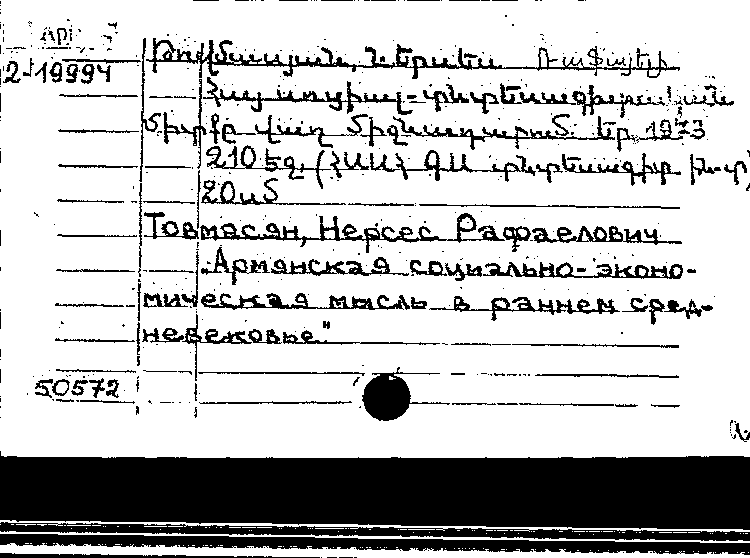 Թովմասյան, Ներսես Ռաֆայելի
2-19994
Հայ սոցիալ-տնտեսագիտական
միտքը վաղ միջնադարում. Եր. 1973
210 էջ, (ՀՍՍՀ ԳԱ տնտեսագիտ. ին-տ)
20 սմ
Товмасян, Нерсес Рафаелович
„Армянская социально-эконо-
мическая мысль в раннем сред-
невековье"
50572